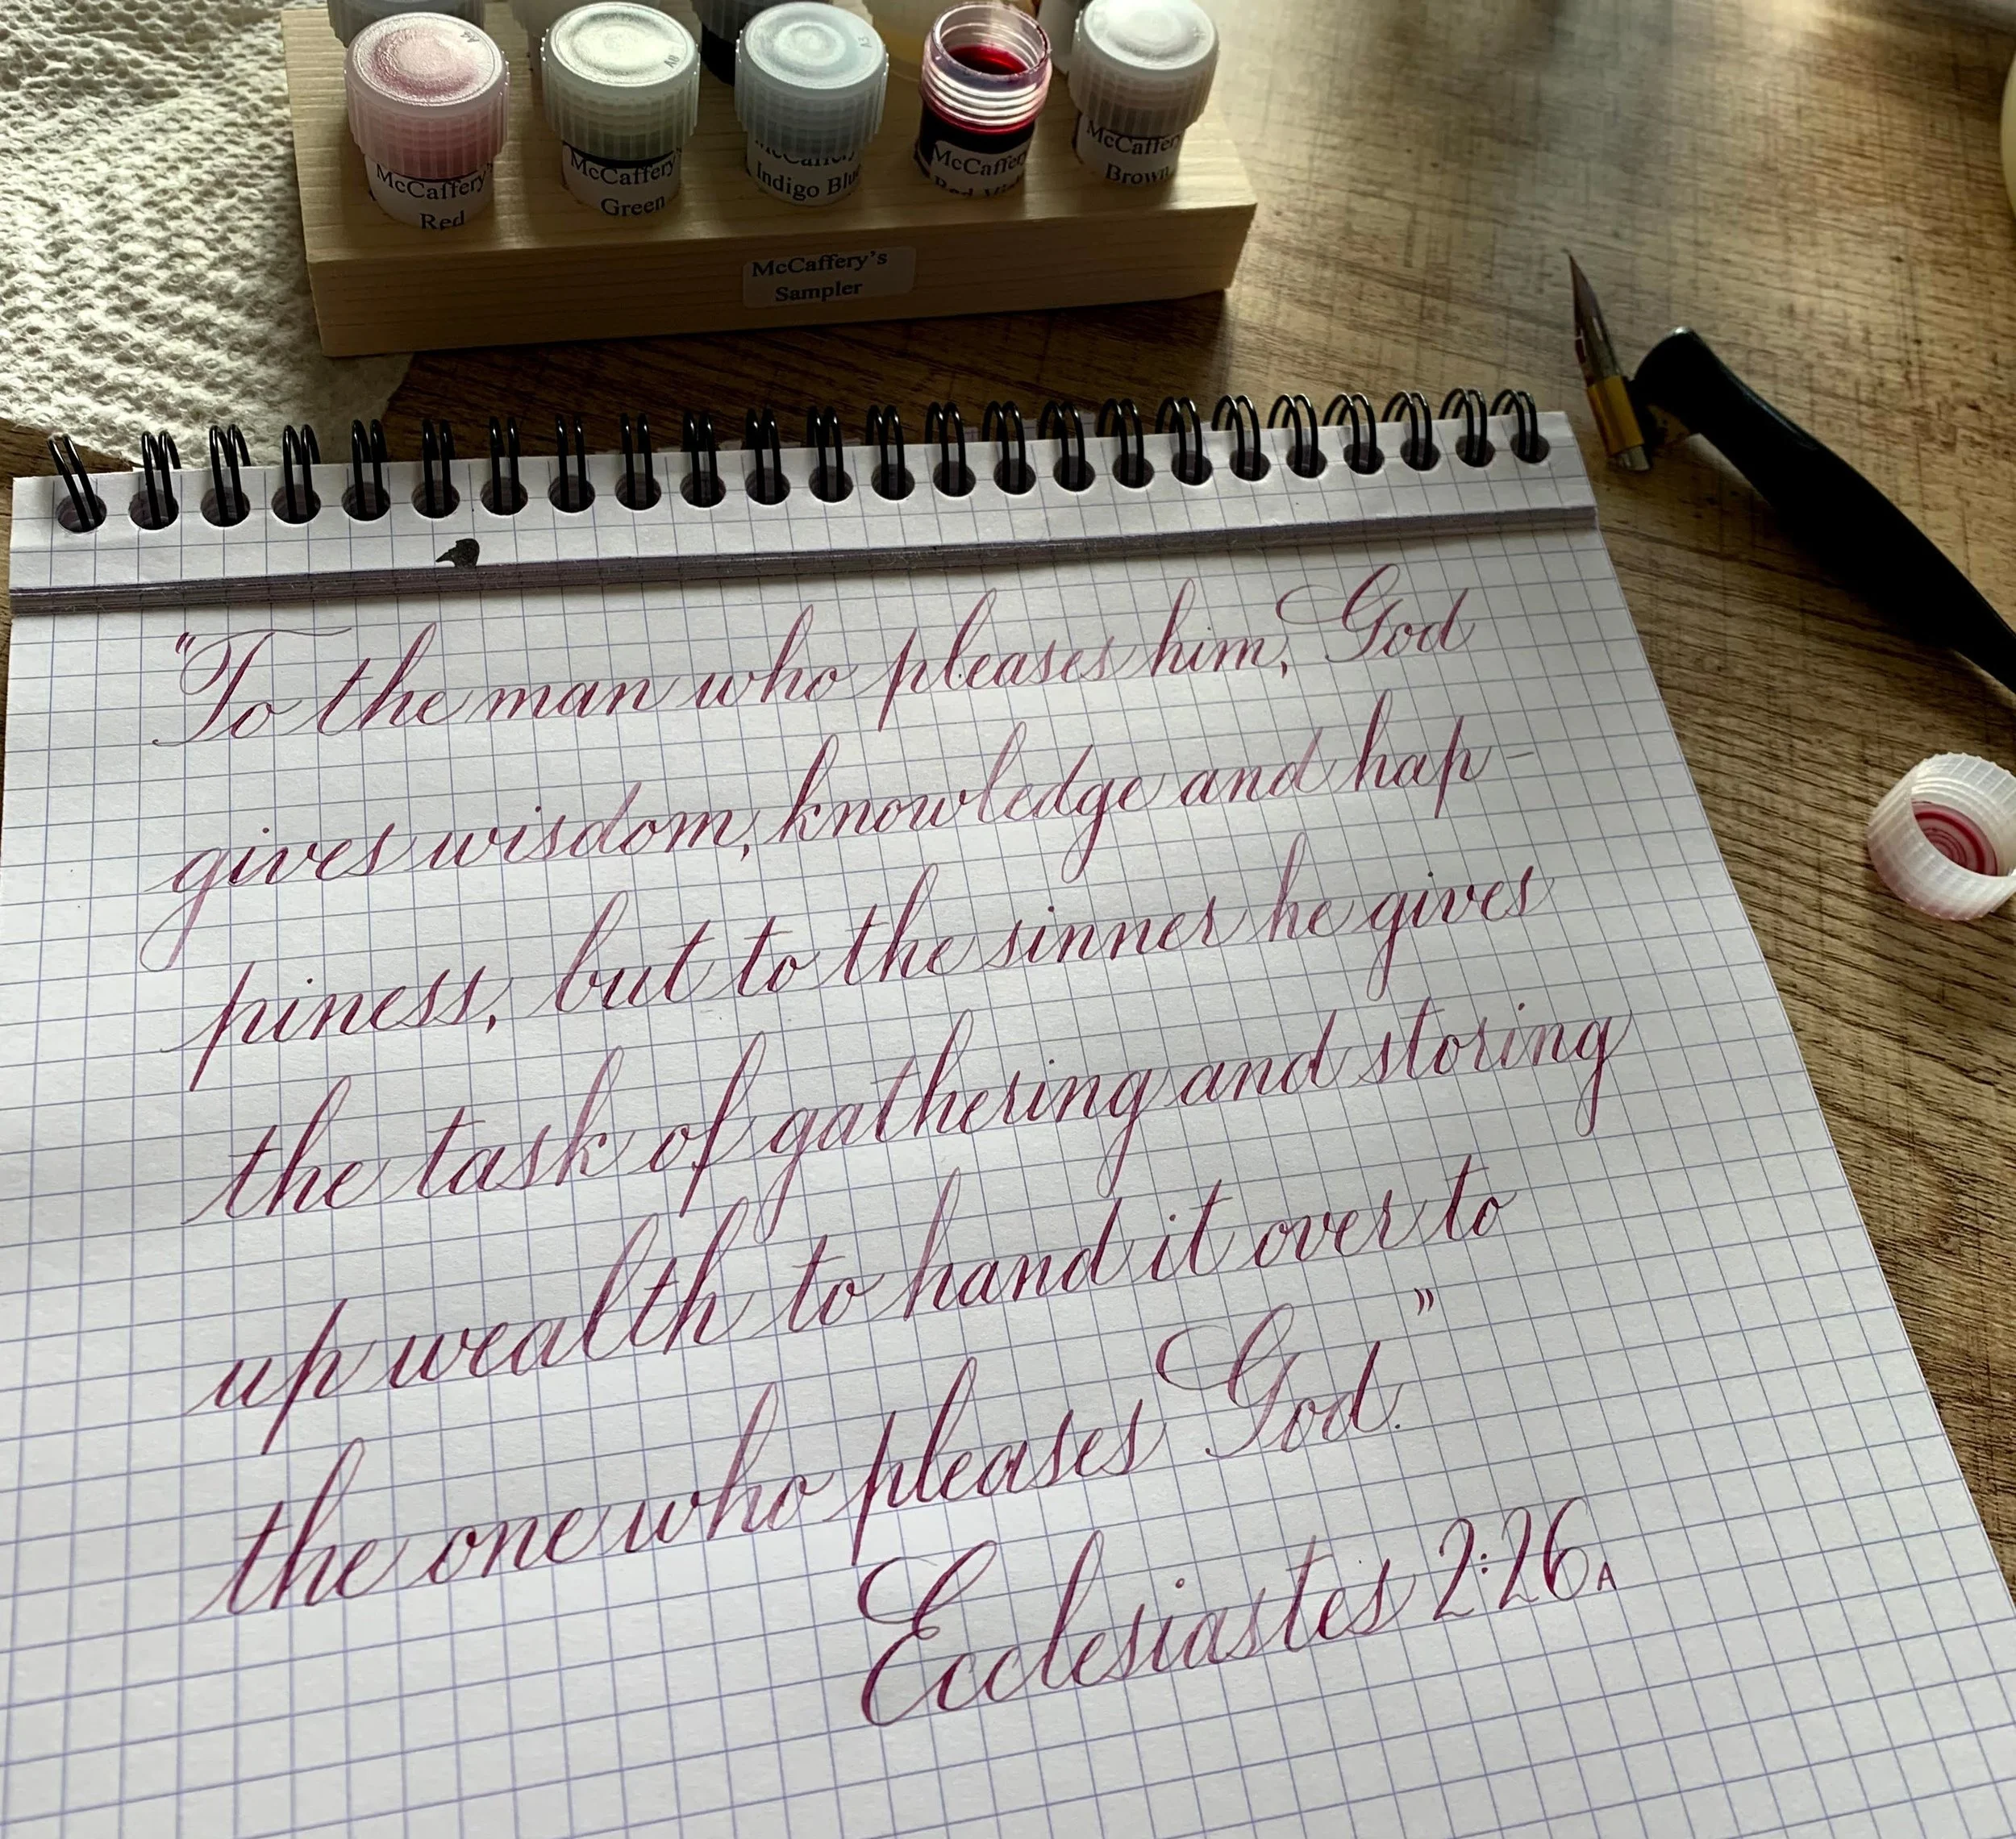 McCaffery's
Red
McCaffery's
Green
Indigo Blue
McCaffery
McCaffery
Brown
McCaffery's
Sampler
"To the man who pleases him, God
gives wisdom, knowledge and hap-
piness, but to the sinner he gives
the task of gathering and storing
up wealth to hand it over to
the one who pleases God."
Ecclesiastes 2:26A